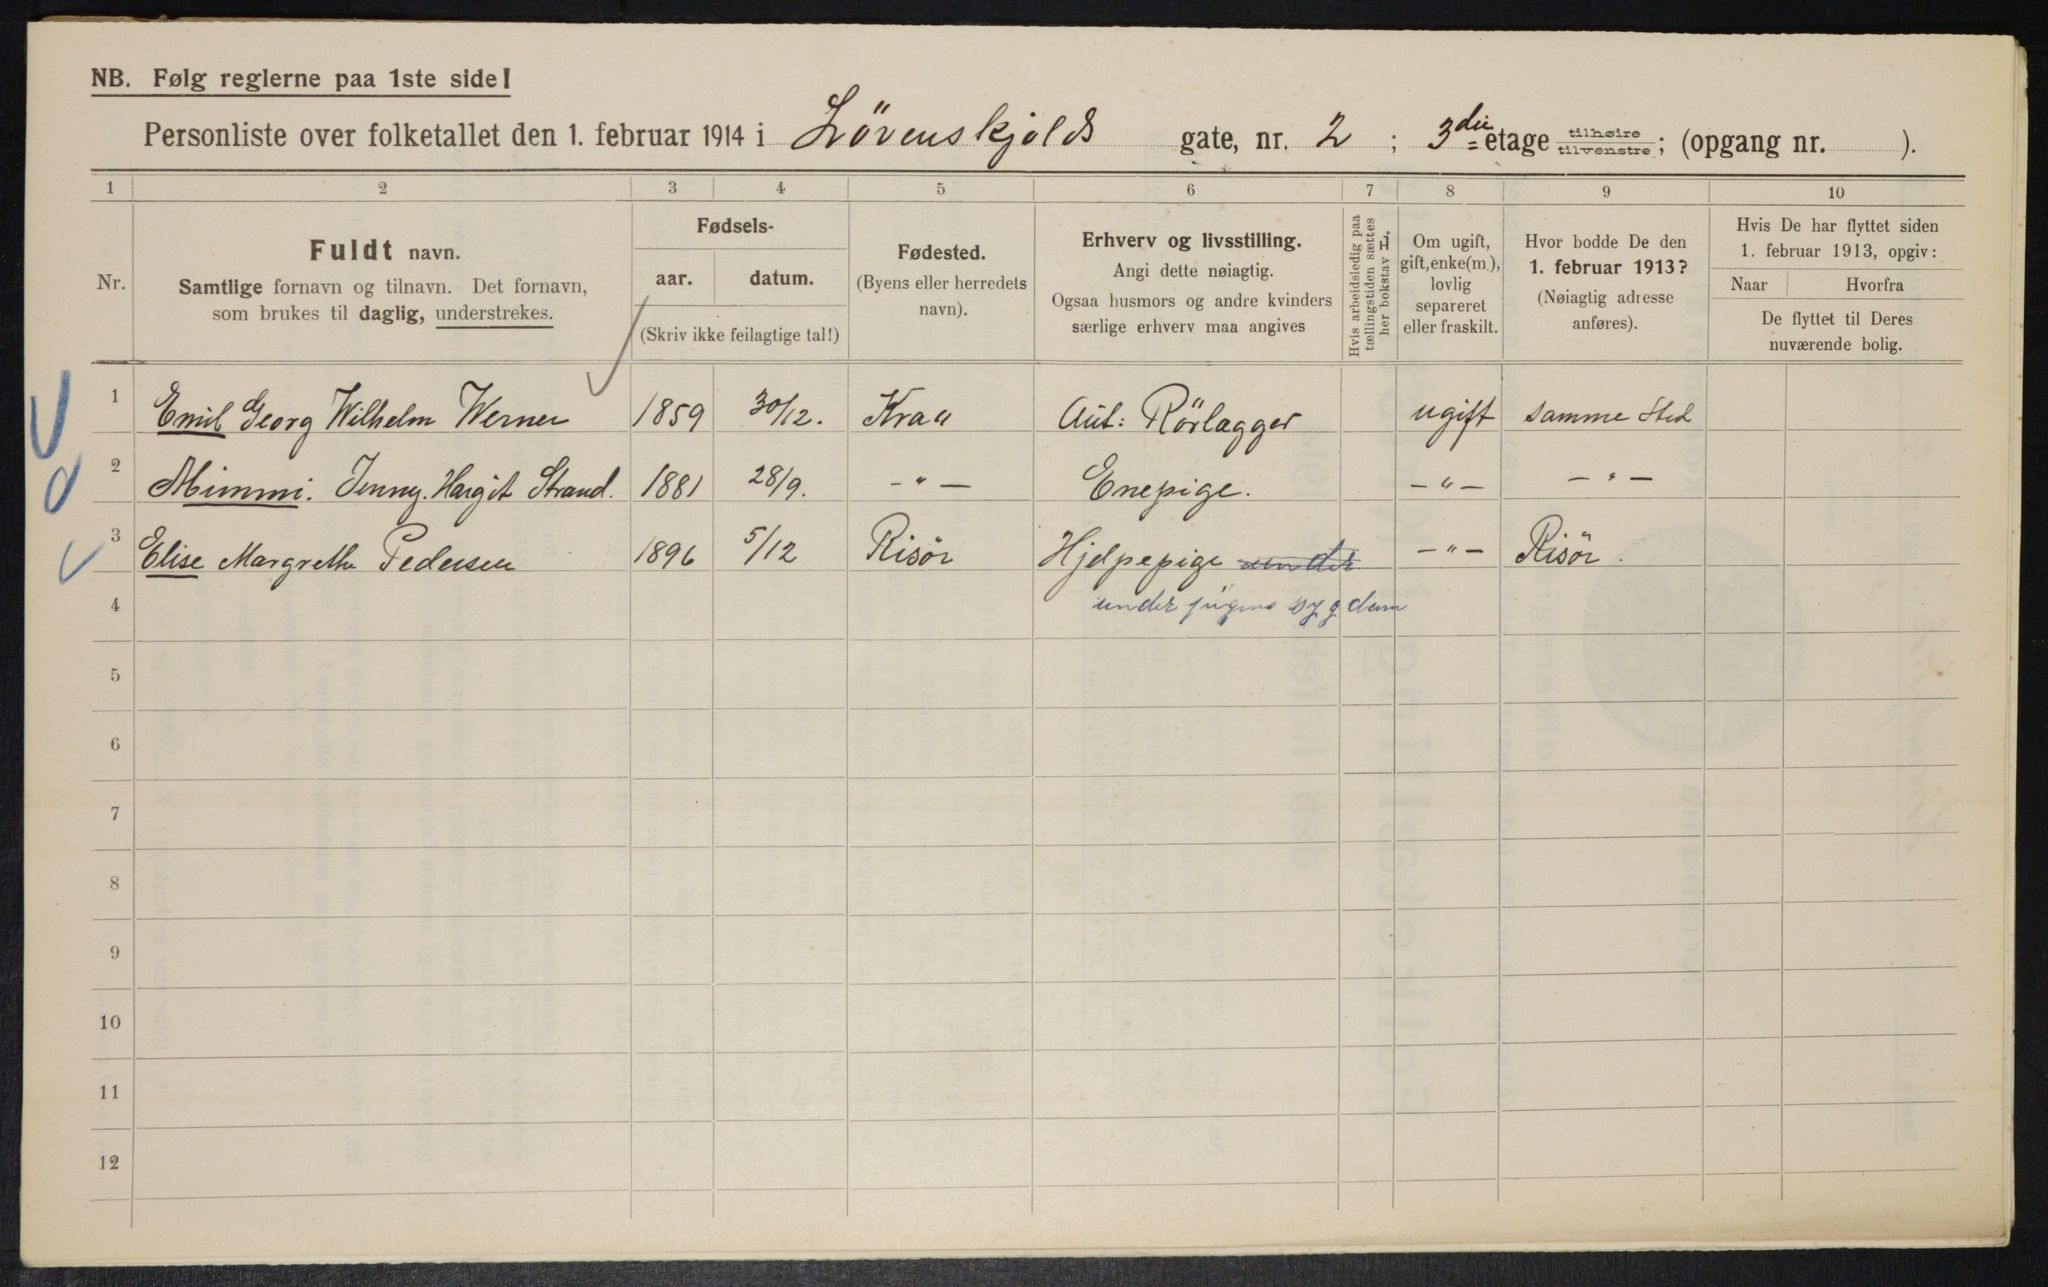 NB. Følg reglerne paa 1ste side!
Personliste over folketallet den 1. februar 1914 i Lövenskjolds gate, nr. 2 ; 3die etage tilhøire tilvenstre; (opgang nr. ).
1 2 3 4 5 6 7 8 9 10
Nr.
Fuldt navn.
Samtlige fornavn og tilnavn. Det fornavn,
som brukes til daglig, understrekes.
Fødsels-
aar. datum.
(Skriv ikke feilagtige tal!)
Fødested.
(Byens eller herredets
navn).
Erhverv og livsstilling.
Angi dette nøiagtig.
Ogsaa husmors og andre kvinders
særlige erhverv maa angives
Hvis arbeidsledig paa
tællingstiden sættes
her bokstav L.
Om ugift,
gift, enke(m.),
lovlig
separeret
eller fraskilt.
Hvor bodde De den
1. februar 1913?
(Nøiagtig adresse
anføres).
Hvis De har flyttet siden
1. februar 1913, opgiv:
Naar Hvorfra
De flyttet til Deres
nuværende bolig.
1 Emil Georg Wilhelm Werner 1859 30/12. Kra" Aut: Rörlægger ugift samme Sted
2 Mimmi. Jenny. Hargit Strand. 1881 28/9. -"- Enepige. -"- -"-
3 Elise Margrethe Pedersen 1896 5/12 Risör Hjelpepige under -"- Risör.
4 under sygdom
5
6
7
8
9
10
11
12